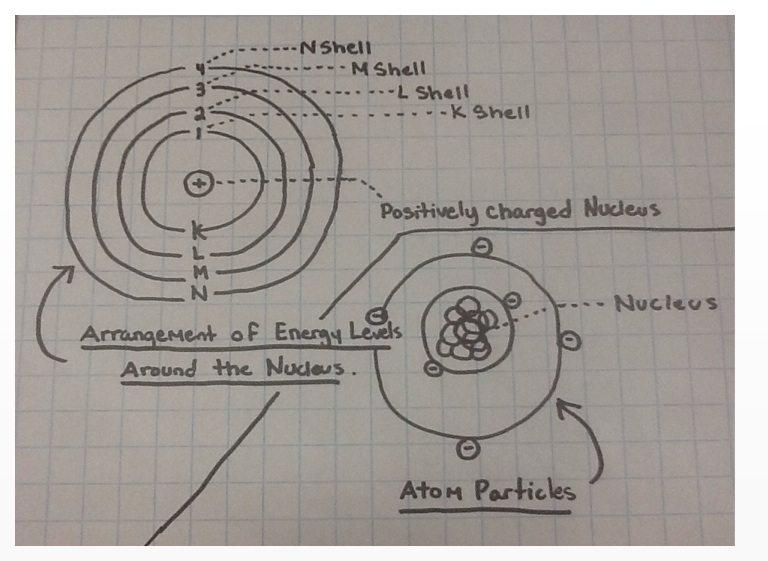 N Shell
4
M Shell
3
L Shell
2
K Shell
1
+
Positively charged Nucleus
K
L
M
N
Nucleus
Arrangement of Energy Levels
Around the Nucleus.
Atom Particles